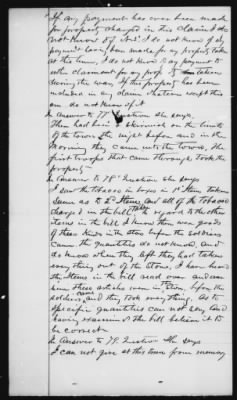 If any payment has ever been made
for property charged in this claim I do
not know of it I do not know of any
payment having been made for any property taken
at this time, I do not know of any payment to
other claimant for any prop taken
during the war. If this property has been
included in any claim I have
do not know of it
In Answer to 77" Question she says.
There had been a skirmish in the limits
of the town the night before and in the
morning they came into the town, the
first troops that came through took the
property
In Answer to 78" Question she says
I saw the tobacco in boxes in 1st Item taken
Same as to 2d Item and all of the tobacco
charged in the bill. In regard to the other
items in the bill I know there were goods
of these kinds in the store before the soldiers
came the quantities do not know, and
do know when they left they had taken
everything out of the Store, I have heard
the items in the bill read over and
these articles were in store before the
soldiers came and they took everything. As to
specific quantities can not say, and
having examined the bill believe it to
be correct
In Answer to 79. Question she says
I can not give at this time from memory